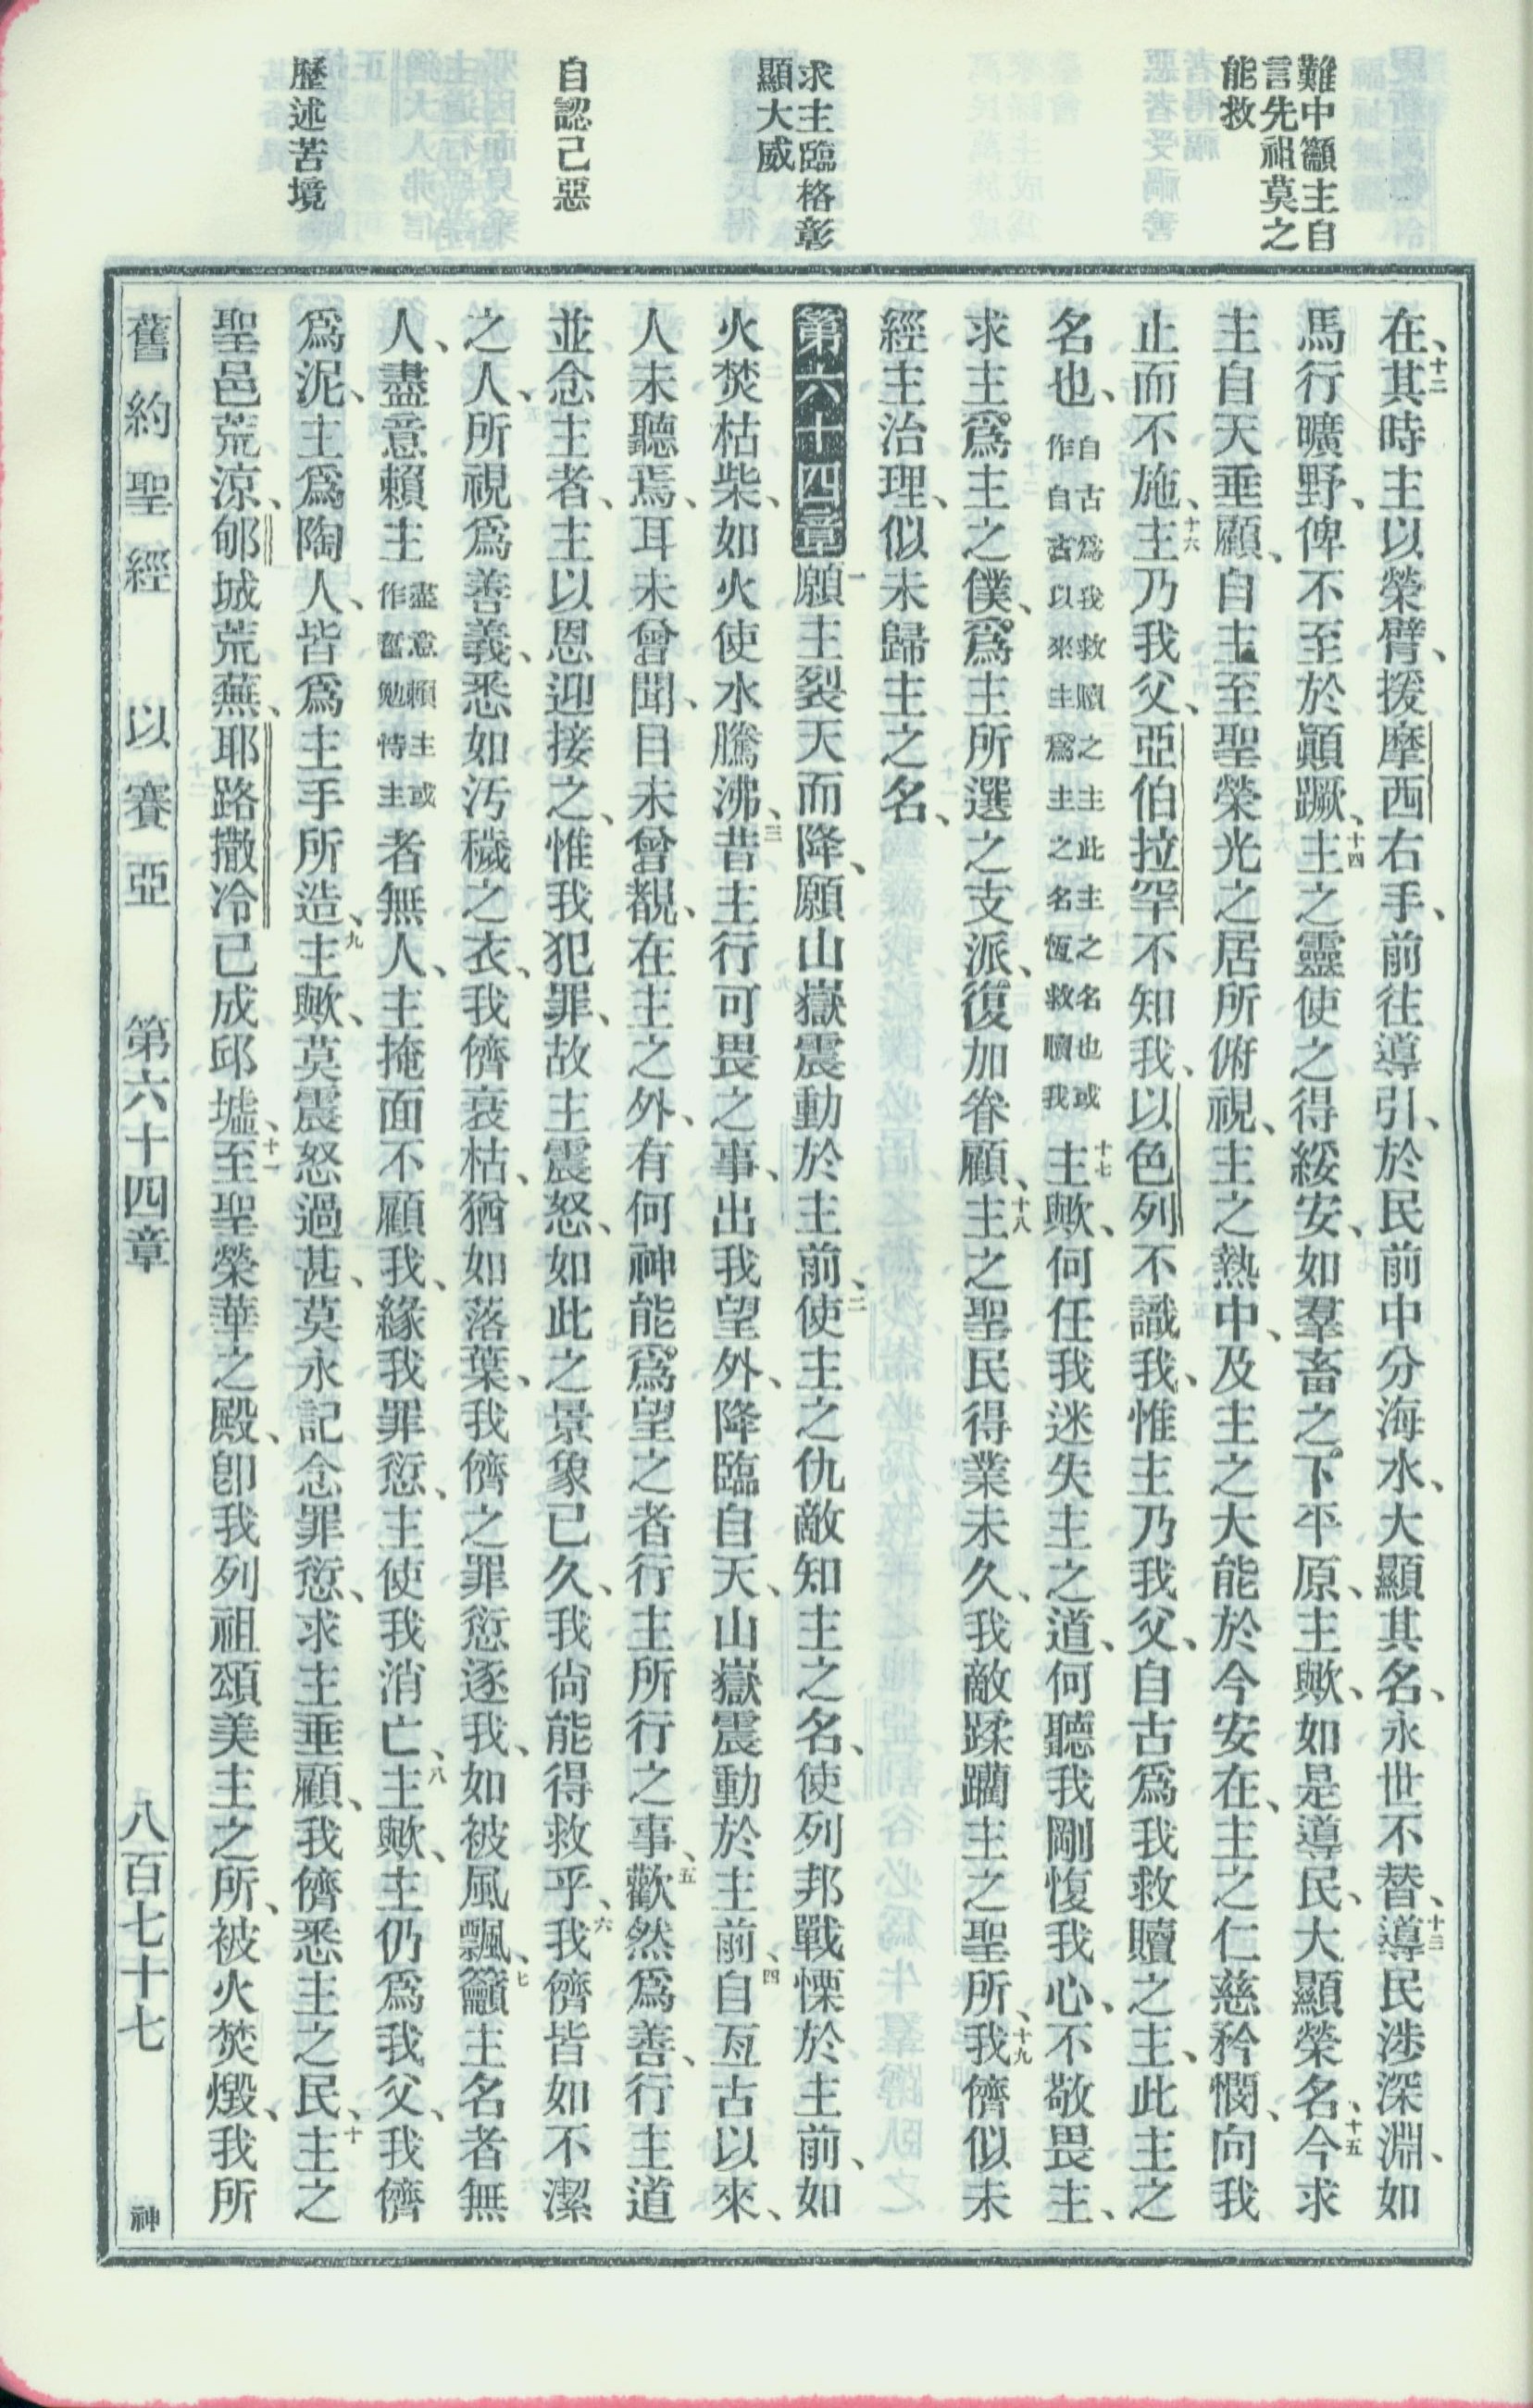 難中籲主自
言先祖莫之
能救
求主臨格彰
顯大威
自認己惡
歷述苦境
在、十二其時主以榮臂、援摩西右手、前往導引、於民前中分海水、大顯其名、永世不替、十三導民涉深淵、如
馬行曠野、俾不至於顚蹶、十四主之靈使之得綏安、如羣畜之下平原、主歟、如是導民、大顯榮名、十五今求
主自天垂顧、自主至聖榮光之居所俯視、主之熱中、及主之大能於今安在、主之仁慈矜憫、向我
止而不施、十六主乃我父、亞伯拉罕不知我、以色列不識我、惟主乃我父、自古爲我救贖之主、此主之
名也、自古爲我救贖之主此主之名也或作自古以來主爲主之名恆救贖我十七主歟、何任我迷失主之道、何聽我剛愎我心、不敬畏主、
求主爲主之僕、爲主所選之支派、復加眷顧、十八主之聖民得業未久、我敵蹂躪主之聖所、十九我儕似未
經主治理、似未歸主之名、
第六十四章一願主裂天而降、願山嶽震動於主前、二使主之仇敵知主之名、使列邦戰慄於主前、如
火焚枯柴、如火使水騰沸、三昔主行可畏之事、出我望外、降臨自天、山嶽震動於主前、四自亙古以來、
人未聽焉、耳未曾聞、目未曾覩、在主之外、有何神能爲望之者行主所行之事、五歡然爲善、行主道
並念主者、主以恩迎接之、惟我犯罪、故主震怒、如此之景象已久、我尙能得救乎、六我儕皆如不潔
之人、所視爲善義、悉如汚穢之衣、我儕衰枯、猶如落葉、我儕之罪愆逐我、如被風飄、七籲主名者無
人、盡意賴主盡意賴主或作奮勉恃主者無人、主掩面不顧我、緣我罪愆、主使我消亡、八主歟、主仍爲我父、我儕
爲泥、主爲陶人、皆爲主手所造、九主歟、莫震怒過甚、莫永記念罪愆、求主垂顧、我儕悉主之民、十主之
聖邑荒涼、郇城荒蕪、耶路撒冷已成邱墟、十一至聖榮華之殿、卽我列祖頌美主之所、被火焚燬、我所
舊約聖經 以賽亞 第六十四章 八百七十七 神